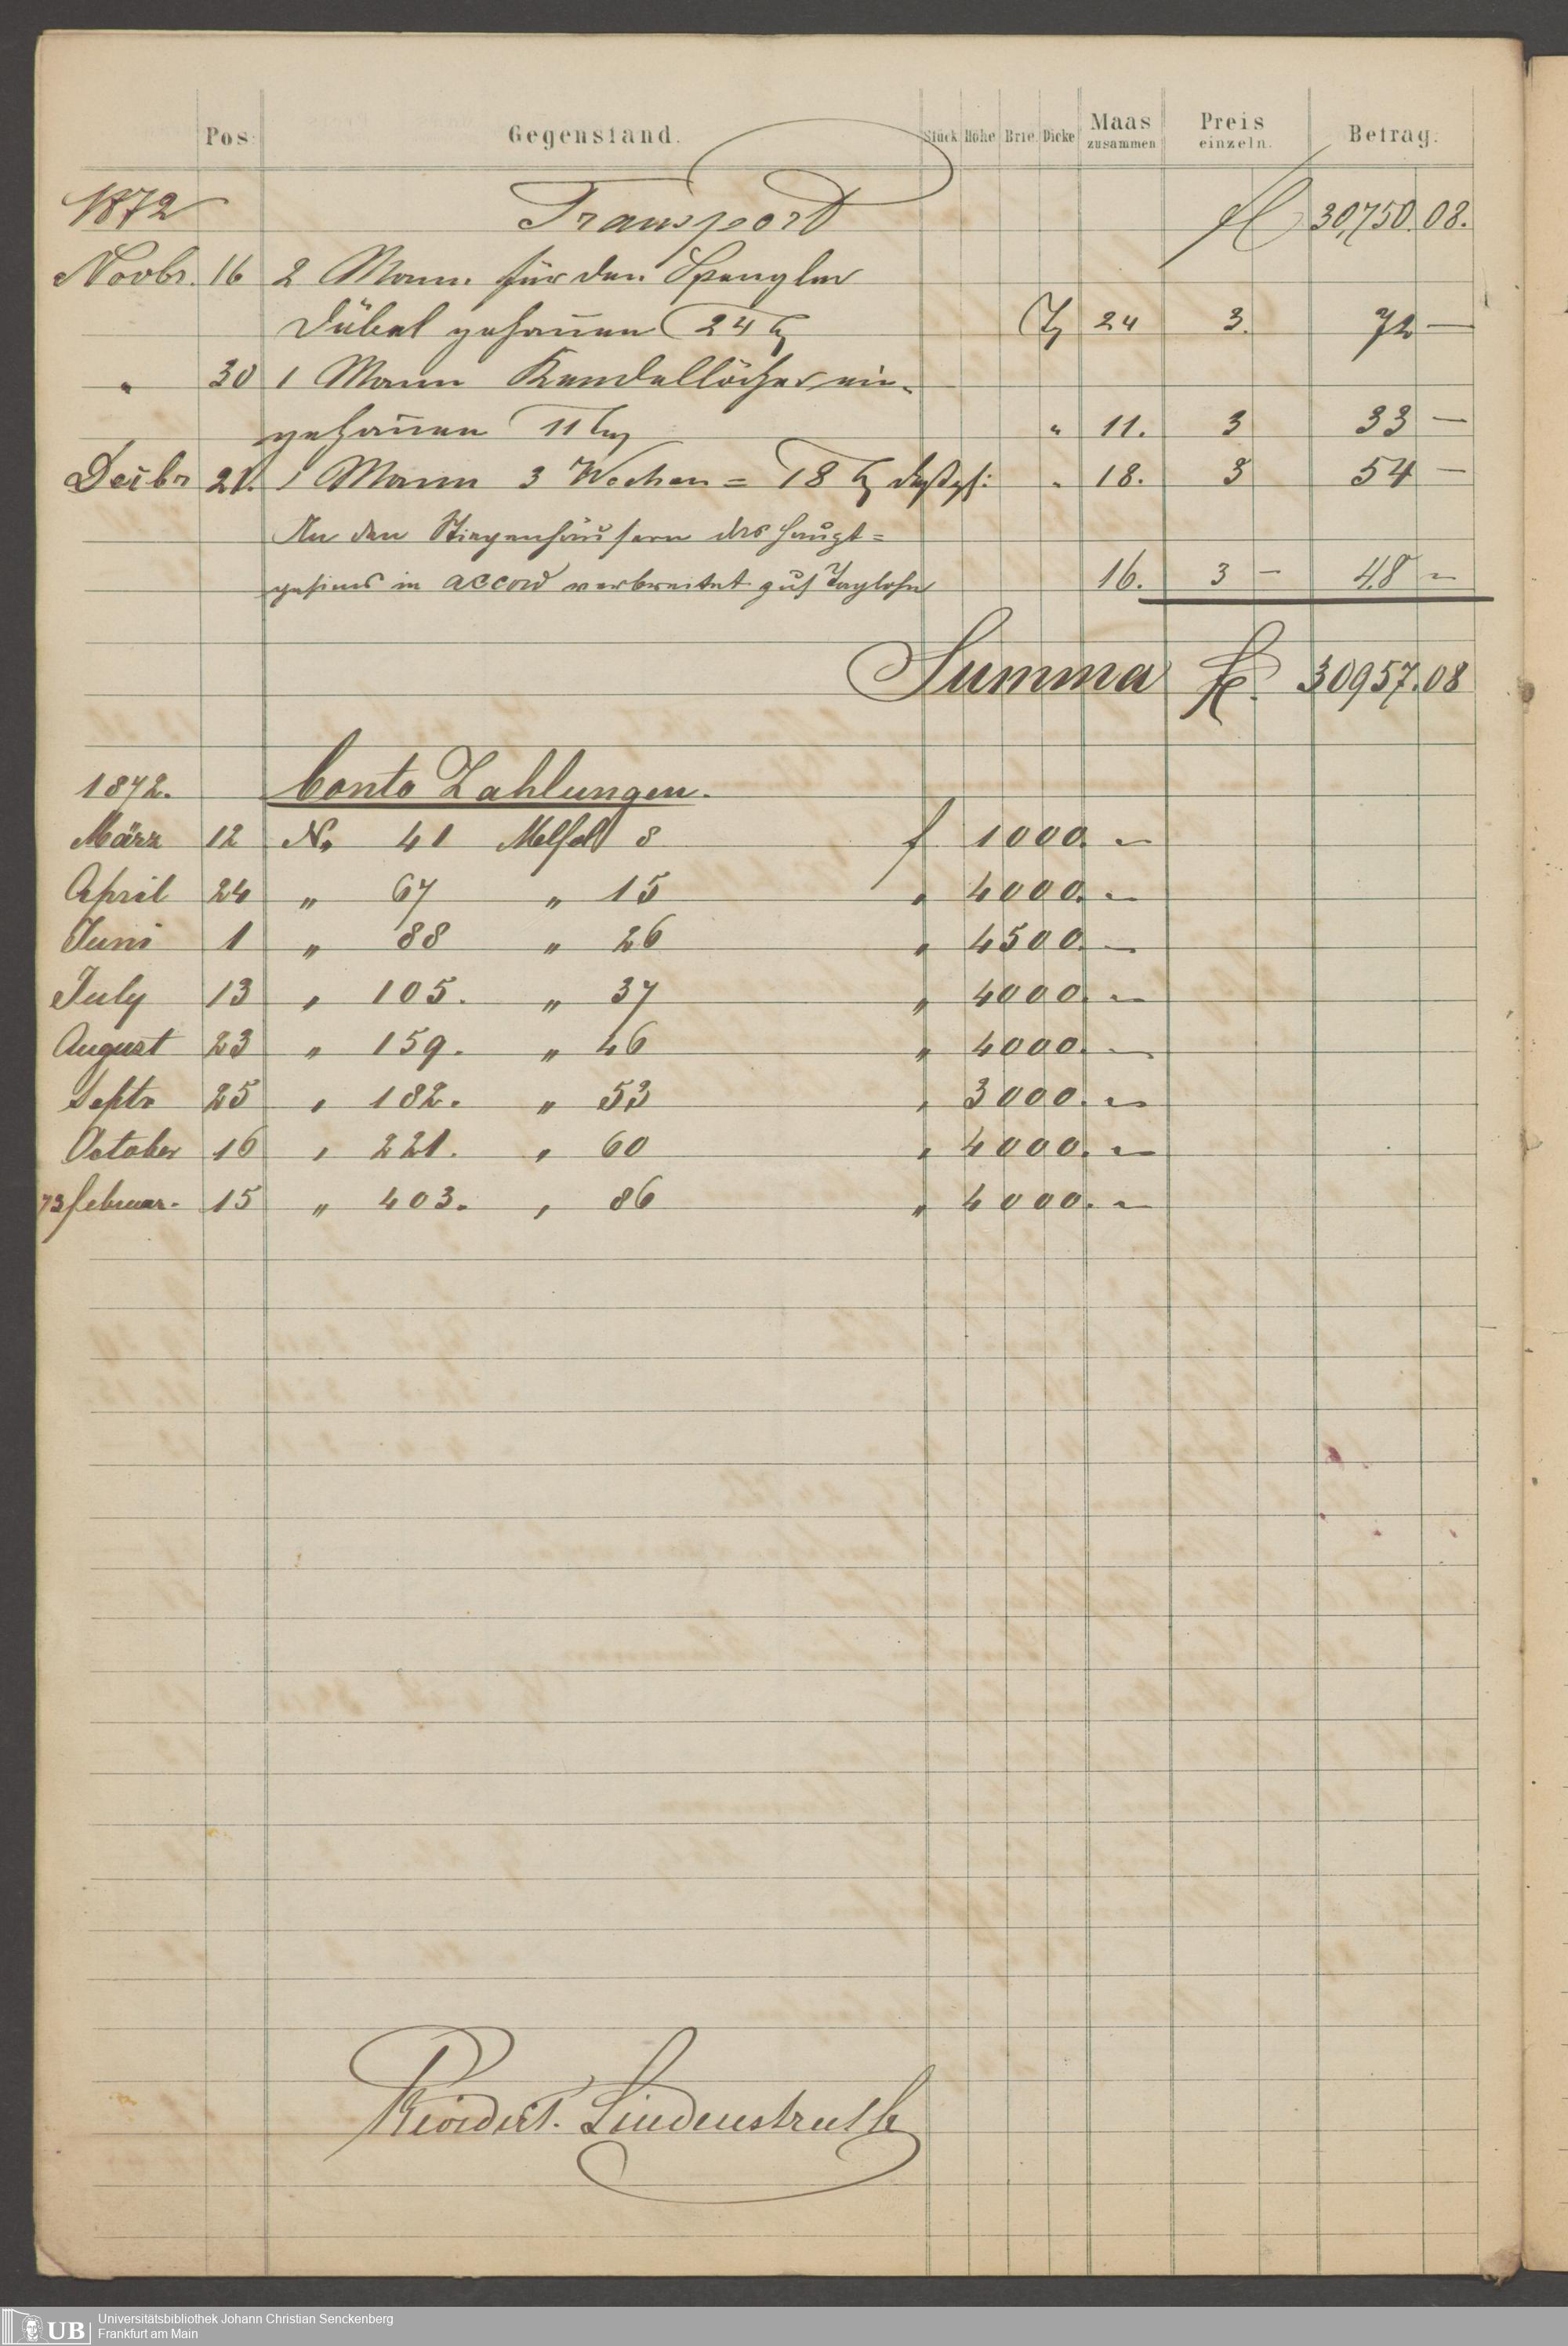 Pos. Gegenstand. Stück Höhe Brte. Dicke Maas zusammen Preis einzeln. Betrag.
1872 Transport fl 30,750.08.
Novbr. 16 2 Mann für den Spengler
Dübel gehauen 24 Tg Tg 24 3. 72 —
" 30 1 Mann Kandellöcher ein-
gehauen 11 Tag " 11. 3 33 —
Decbr 21. 1 Mann 3 Wochen = 18 Tg " 18. 3 54 —
An den Stiegenhäusern das Haupt=
gesims in accord verbreitet Taglohn 16. 3 — 48 —
Summa fl. 30957.08
1872. Conto Zahlungen.
März 12 No. 41 8 f 1000. —
April 24 " 67 " 15 " 4000. —
Juni 1 " 88 " 26 " 4500 —
July 13 " 105. " 37 " 4000. —
August 23 " 159. " 46 " 4000. —
Septr 25 " 182. " 53 " 3000. —
October 16 " 221. " 60 " 4000. —
73 Februar. 15 " 403. " 86 " 4000. —
Lindenstruth
UB Universitätsbibliothek Johann Christian Senckenberg
Frankfurt am Main